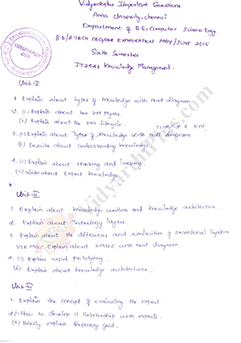 Vidyarthiplus Important Questions
Anna University, Chennai
Department of B.E. Computer Science Engg
B.E/B.TECH DEGREE EXAMINATION MAY/JUNE 2015
Sixth Semester
Knowledge Management
Unit-I
1. Explain about types of knowledge with neat diagram
2. (i) Explain about the KM Myths.
(ii) Explain about the KM Lifecycle
3. (i) Explain about Types of Knowledge with neat diagram.
(ii) Describe about Understanding Knowledge
4. (i) Explain about thinking and learning.
(ii) Write about Expert Knowledge
Unit-II
1. Explain about knowledge creation and knowledge architecture.
2. Explain about Technology layers.
3. Explain about the difference and similarities of conventional System
KMSLC with neat diagram.
4. (i) Explain rapid Prototyping
(ii) Explain about knowledge architecture.
Unit-III
1. Explain the concept of evaluating the expert
2. (i) How to develop a Relationship with experts.
(ii) Briefly explain Repertory grid.